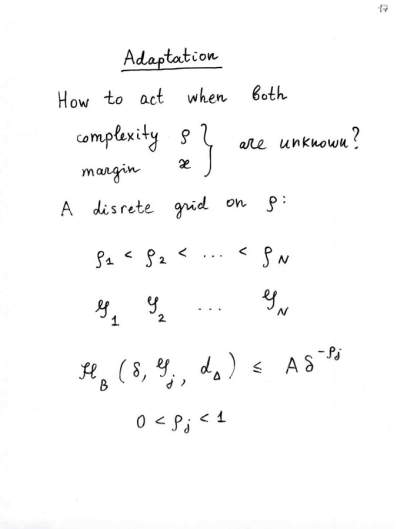 17
Adaptation
How to act when both
complexity ρ } are unknown?
margin æ
A disrete grid on ρ:
ρ1 < ρ2 < ... < ρN
𝒢1 𝒢2 ... 𝒢N
ℋB (δ, 𝒢j, dΔ) ≤ Aδ^-ρj
0 < ρj < 1